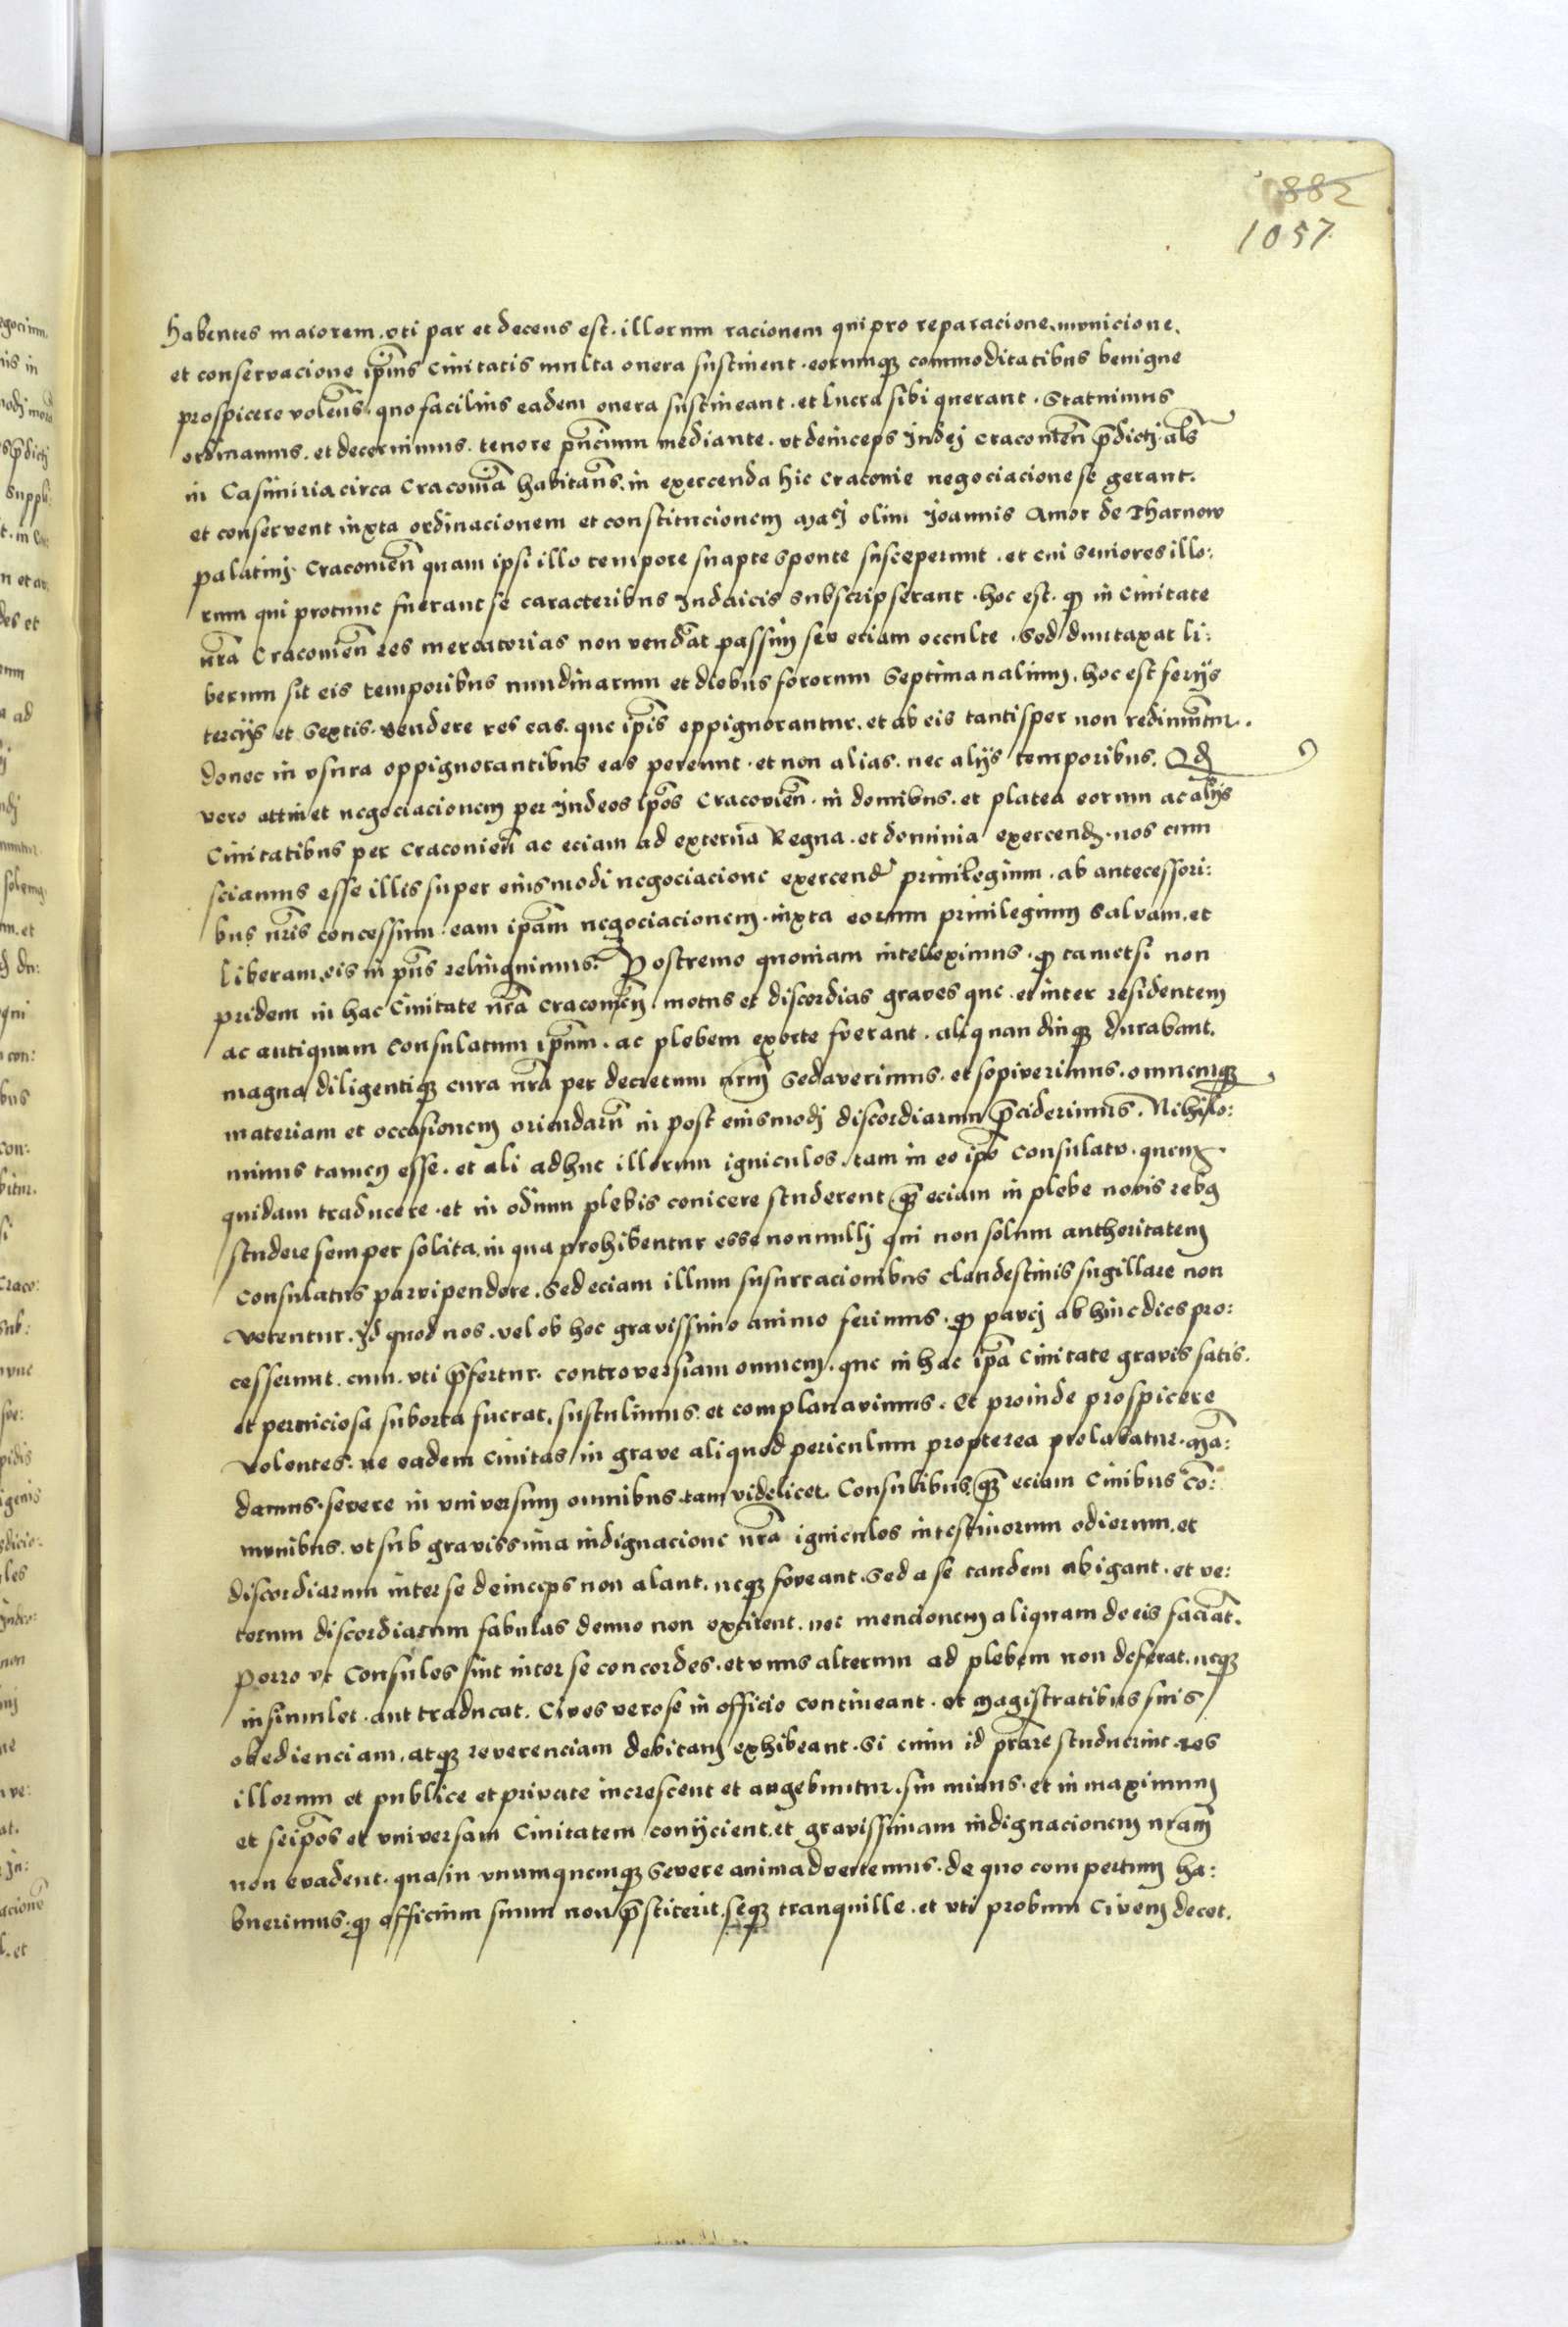 882
1057
habentes maiorem. vti par et decens est. illorum racionem qui pro reparacione. municione.
et conservacione ip̄ius Civitatis multa onera sustinent. eorumq3 commoditatibus benigne
prospicere volen̄s. quo facilius eadem onera sustineant. et lucra sibi querant. Statuimus
ordinamus. et decernimus. tenore pn̄cium mediante. vt deinceps Iudej Cracovien̄ p̄dictj. als̄
in Casimiria circa Cracoviā habitan̄s. in exercenda hic Cracovie negociacione se gerant.
et conservent iuxta ordinacionem et constitucionem Mācj olim Joannis Amor de Tharnow
palatinj Cracovien̄ quam ipsi illo tempore suapte sponte susceperunt. et cui seniores illo:
rum qui protunc fuerant se caracteribus Iudaicis subscripserant. hoc est. ꝙ in Civitate
nr̄a Cracovien̄ res mercatorias non vendāt passim sev eciam occulte. Sed duntaxat li:
berum sit eis temporibus nundinarum et diebus fororum Septimanalium. hoc est ferijs
tercijs et Sextis. vendere res eas. que ip̄is oppignorantur. et ab eis tantisper non redimūtur.
donec in vsura oppignorantibus eas pereunt. et non alias. nec alijs temporibus. Qd
vero attinet negociacionem per Iudeos ip̄os Cracovien̄. in domibus. et platea eorum ac alijs
Civitatibus per Cracovien̄ ac eciam ad externa Regna. et dominia exercend. nos cum
sciamus esse illis super eiusmodi negociacione exercend privilegium. ab antecessori:
bus nr̄is concessum. eam ip̄am negociacionem. iuxta eorum privilegium salvam. et
liberam. eis in pn̄s relinquimus. Postremo quoniam intelleximus. ꝙ tametsi non
pridem in hac Civitate nr̄a Cracovien̄. motus et discordias graves que. et inter residentem
ac antiquum Consulatum ip̄um. ac plebem exorte fuerant. aliquandiuq3 durabant.
magna diligentiq3 cura nr̄a per decretum nr̄m sedaverimus. et sopiverimus. omnemq3
materiam et occasionem oriendarū in post eiusmodj discordiarum p̄ciderimus. Nihilo:
minus tamen esse. et ali adhuc illorum igniculos. tam in eo ip̄o Consulatu. quem
quidam traducere. et in odium plebis conicere studerent. q3 eciam in plebe novis rebus
studere semper solita. in qua prohibentur esse nonnullj qui non solum authoritatem
Consulatus parvipendere. sed eciam illum susurracionibus clandestinis sugillare non
verentur. Id quod nos. vel ob hoc gravissimo animo ferimus. ꝙ paucj ab hinc dies pro:
cesserunt. cum. vti p̄fertur. controversiam omnem. que in hac ip̄a Civitate gravis satis.
et perniciosa suborta fuerat. sustulimus. et complanavimus. Et proinde prospicere
volentes. ne eadem Civitas in grave aliquod periculum propterea prolabatur. Mā:
damus. severe in vniversum omnibus. tam videlicet Consulibus. q3 eciam Civibus cō:
munibus. vt sub gravissima indignacione nr̄a igniculos intestinorum odiorum. et
discordiarum inter se deinceps non alant. neq3 foveant. Sed a se tandem abigant. et ve:
terum discordiarum fabulas denuo non excitent. nec mencionem aliquam de eis faciāt.
Porro vt Consules sint inter se concordes. et vnus alterum ad plebem non deferat. neq3
insimulet. aut traducat. Cives vero se in officio contineant. et Magistratibus suis
obedienciam. atq3 reverenciam debitam exhibeant. Si enim id prāre studuerint. res
illorum et publice et private increscent et augebuntur. sin minus. et in maximum
et seip̄os et vniversam Civitatem conijcient. et gravissimam indignacionem nr̄am
non evadent. qua in vnumquemq3 severe animadvertemus. de quo compertum ha:
buerimus. ꝙ officium suum non p̄stiterit. seq3 tranquille. et vti probum Civem decet.